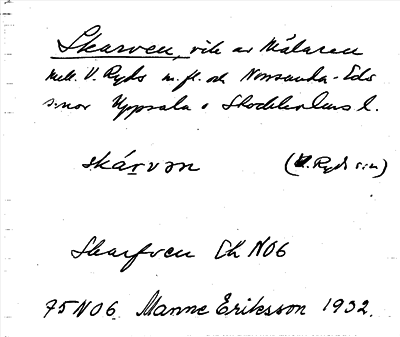 Skarven, vik av Mälaren
mell. V. Ryds m. fl. och Norrsunda - Eds
s:nar Uppsala o Stockholms l.
skárvən (V. Ryds sn)
Skarfven Ek NO6
75 NO6. Manne Eriksson 1932.